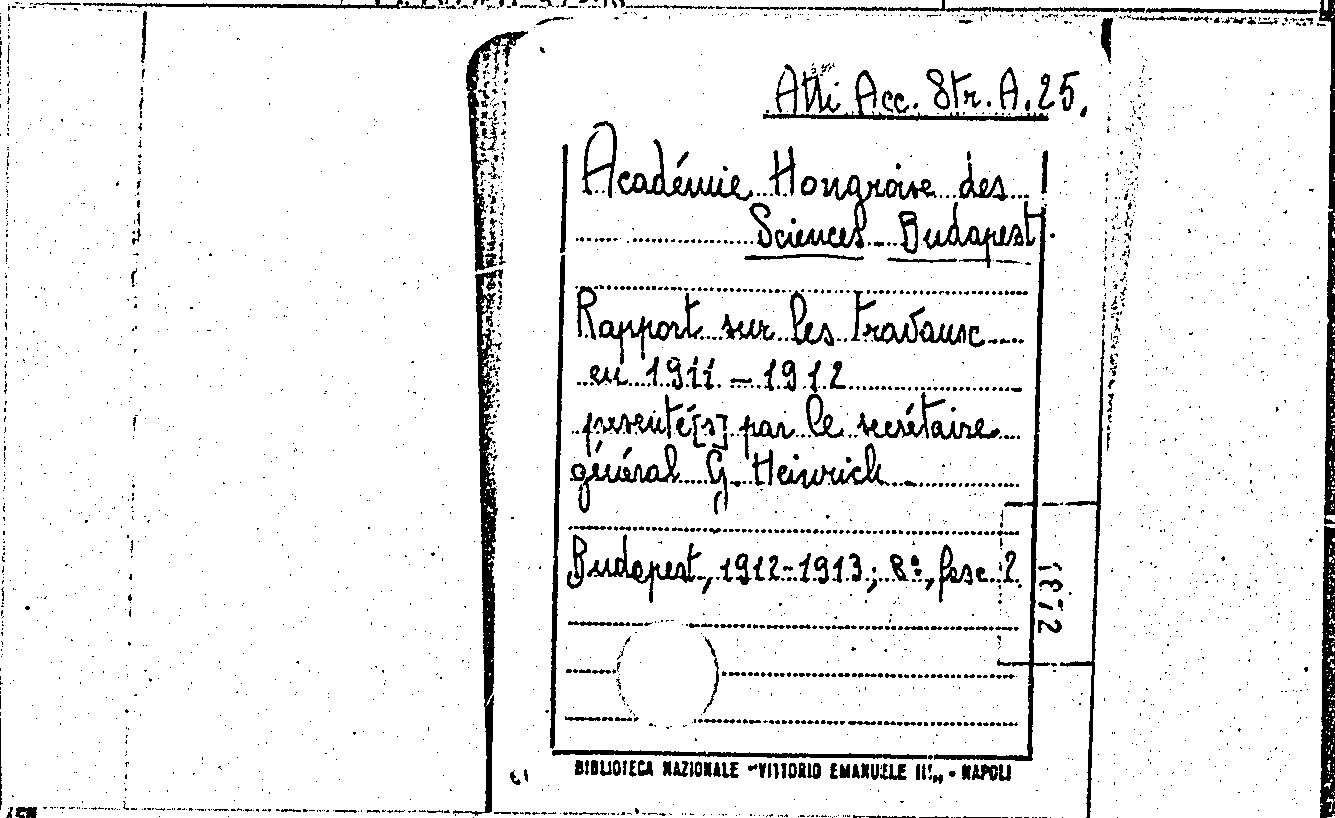 Atti Acc. Str. A. 25.
Académie Hongroise des
Sciences - Budapest.
Rapport sur les travaux
en 1911 - 1912
presenté[s] par le secrétaire
général G. Heinrich
Budapest, 1912-1913; 8º, fasc. 2
1872
61
BIBLIOTECA NAZIONALE "VITTORIO EMANUELE III" - NAPOLI